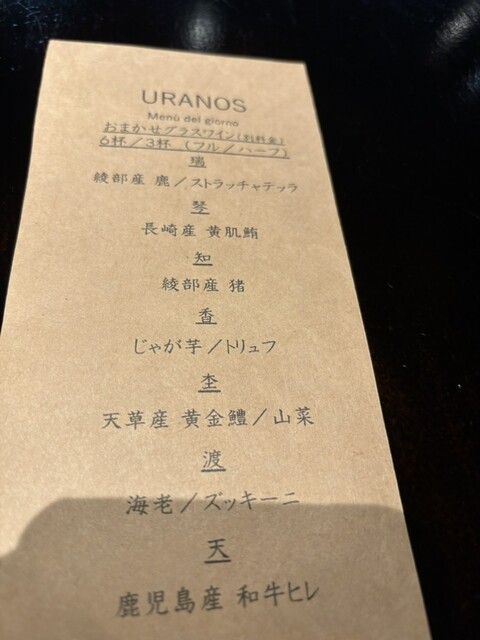 URANOS
Menù del giorno
おまかせグラスワイン(別料金)
6杯/3杯 (フル/ハーフ)
瑞
綾部産 鹿/ストラッチャテッラ
琴
長崎産 黄肌鮪
知
綾部産 猪
香
じゃが芋/トリュフ
杢
天草産 黄金鱧/山菜
渡
海老/ズッキーニ
天
鹿児島産 和牛ヒレ